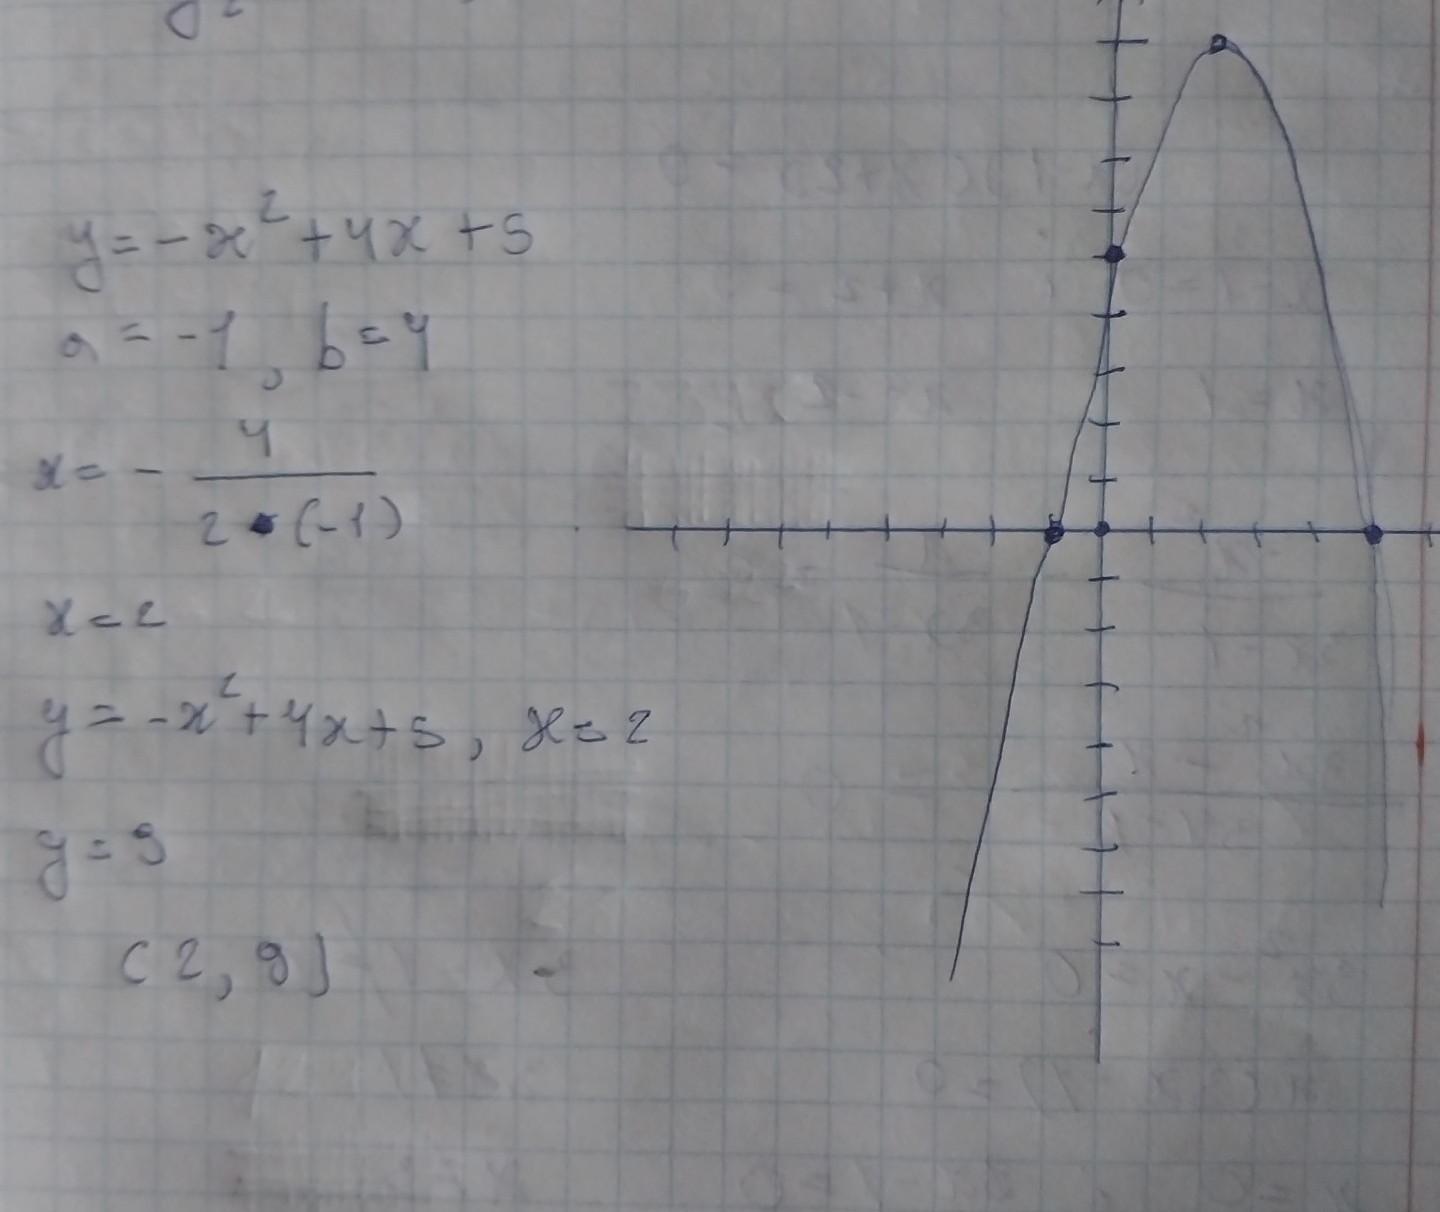 y = -x² + 4x + 5
a = -1, b = 4
x = - 4 / 2 • (-1)
x = 2
y = -x² + 4x + 5, x = 2
y = 9
(2, 9)